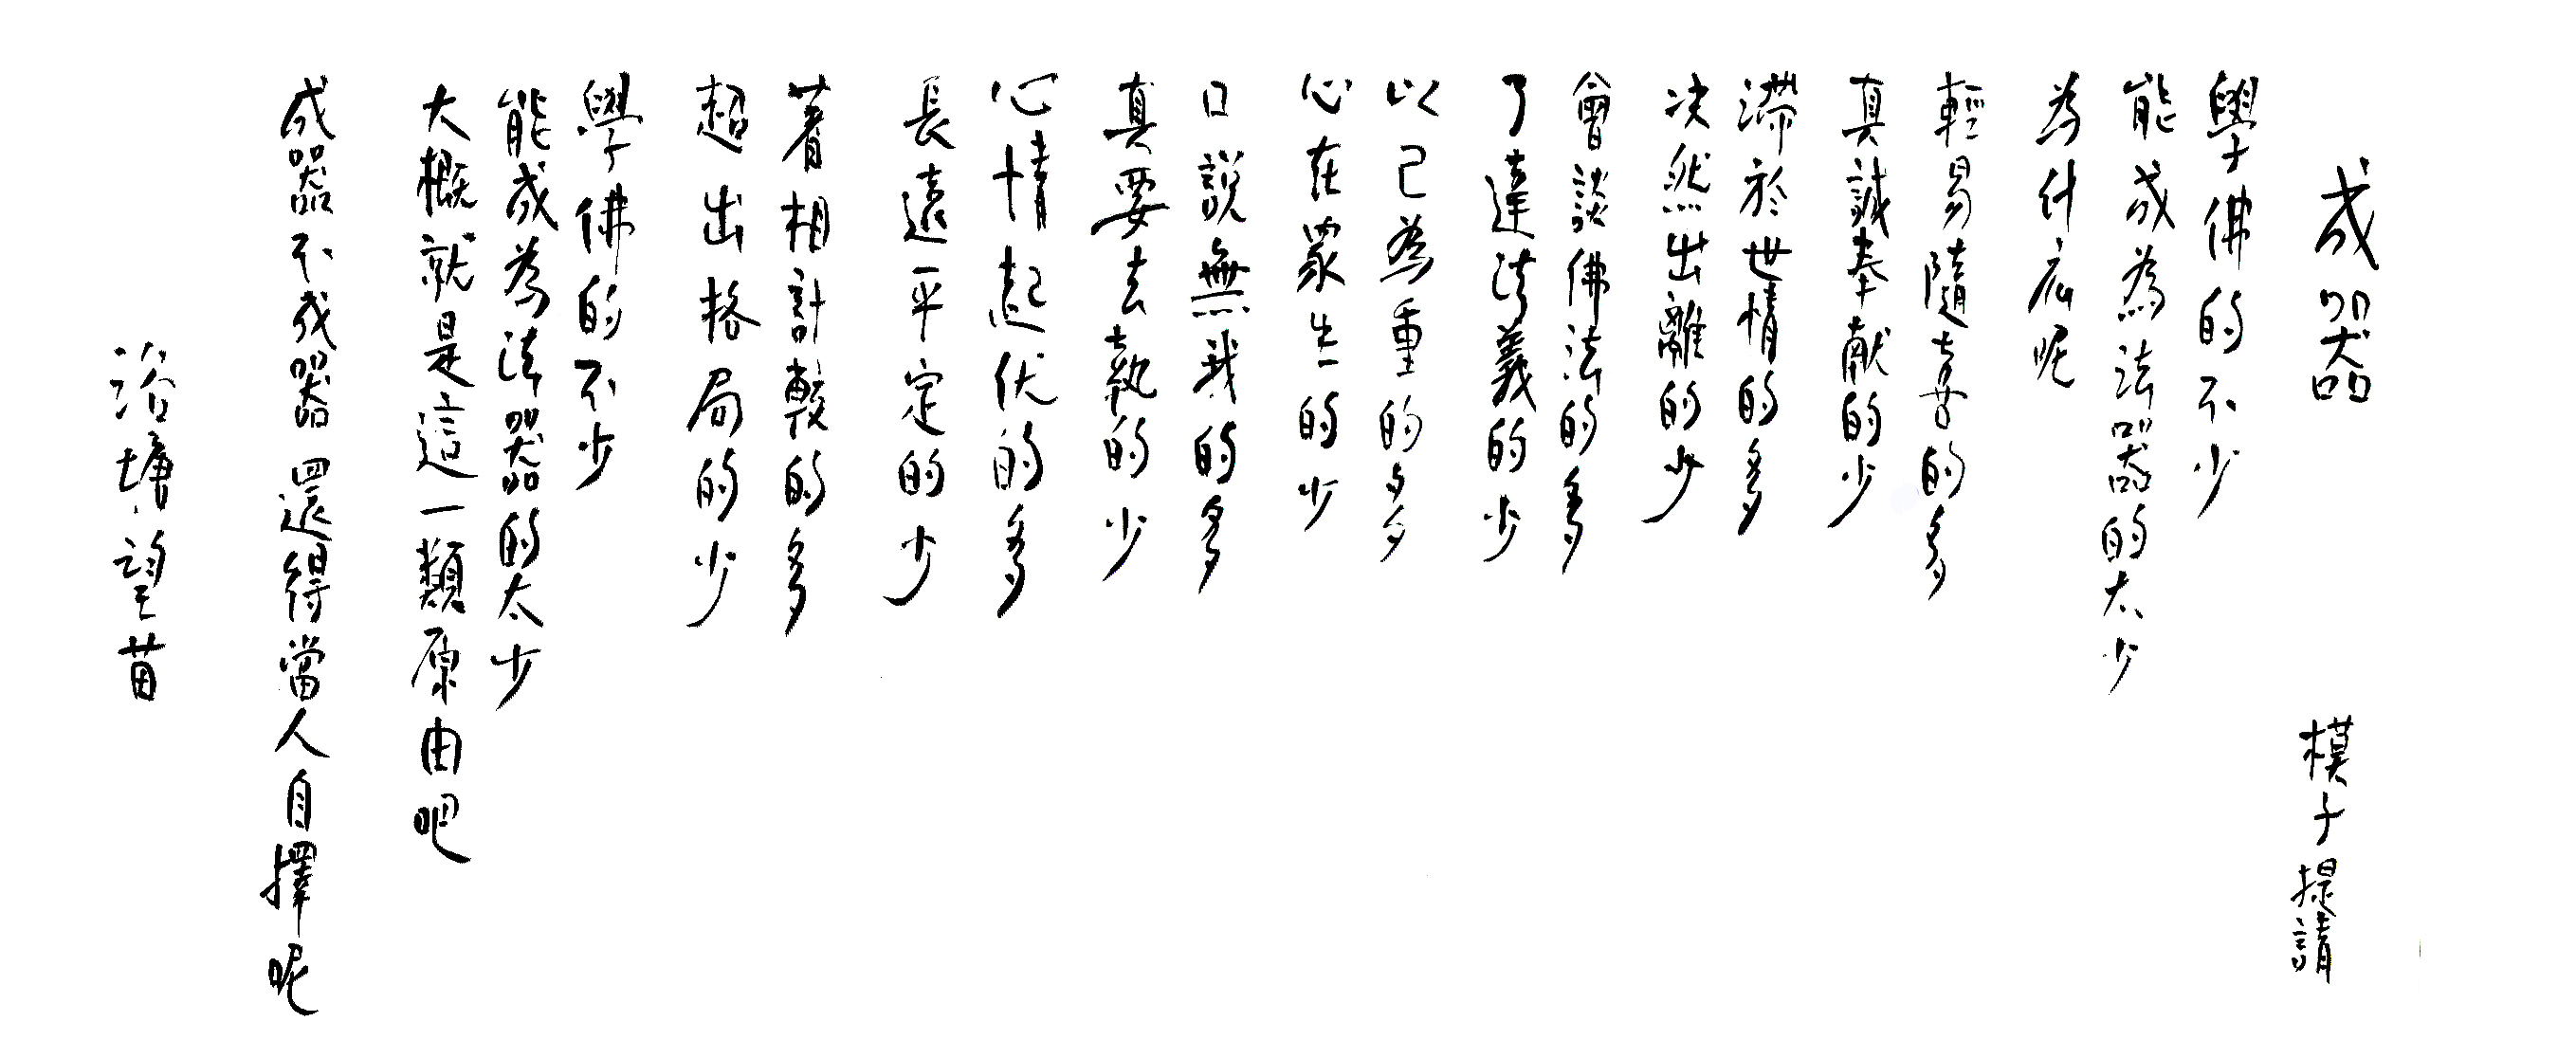 成器
模子提請
學佛的不少
能成為法器的太少
為什底呢
輕易隨喜的多
真誠奉献的少
滯於世情的多
决然出離的少
會談佛法的多
了達法義的少
以己為重的多
心在眾生的少
口說無我的多
真要去執的少
心情起伏的多
長遠平定的少
著相計較的多
超出格局的少
學佛的不少
能成為法器的太少
大概就是這一類原由吧
成器不成器 還得當人自擇呢
浴塘望苗